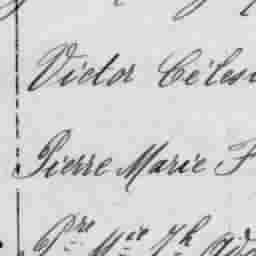 Victor Céles
Pierre Marie F
Pre Mie Jh Ado